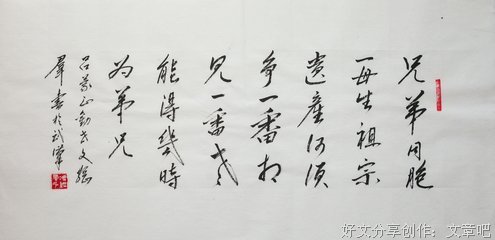 兄弟同胞
一母生祖宗
遗產何须
争一番相
见一番老
能得幾時
为弟兄
吕蒙正劝世文張
羣書於武漢
好文分享创作：文章吧